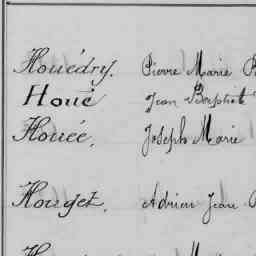 Houédry. Pierre Marie
Houé Jean Baptist
Houée. Joseph Marie
Houget. Adrien Jean